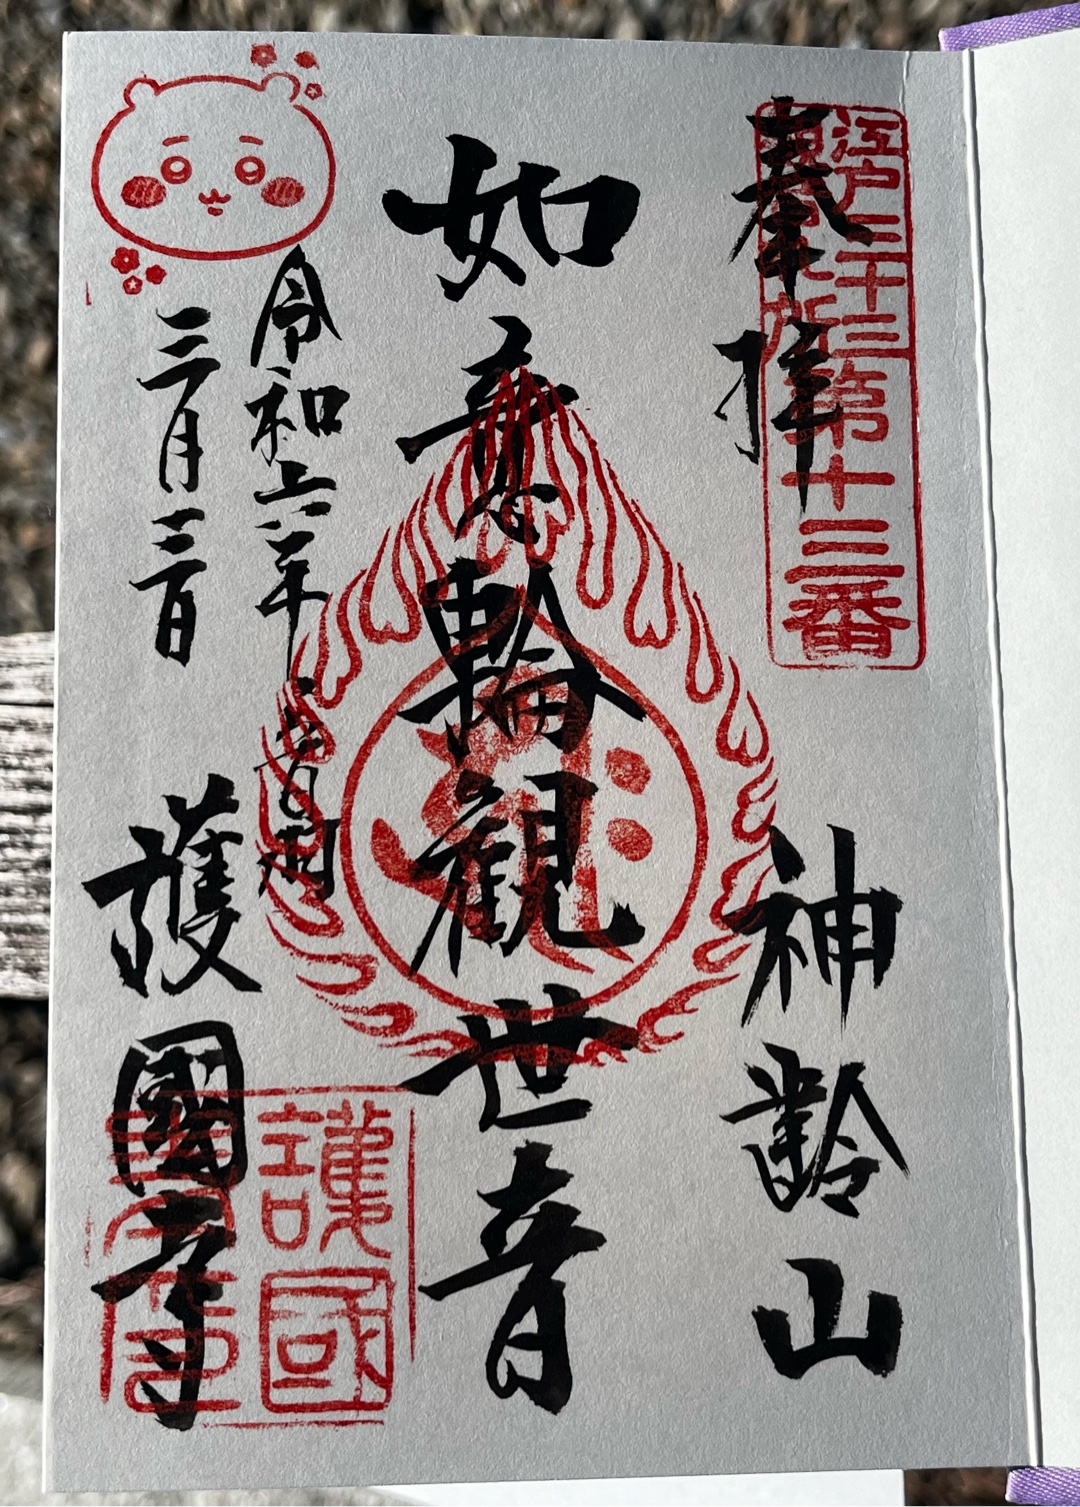 奉拝
江戸三十三
札所
第十三番
神齡山
如意輪観世音
令和六年
三月三日
護國寺
護國
寺印